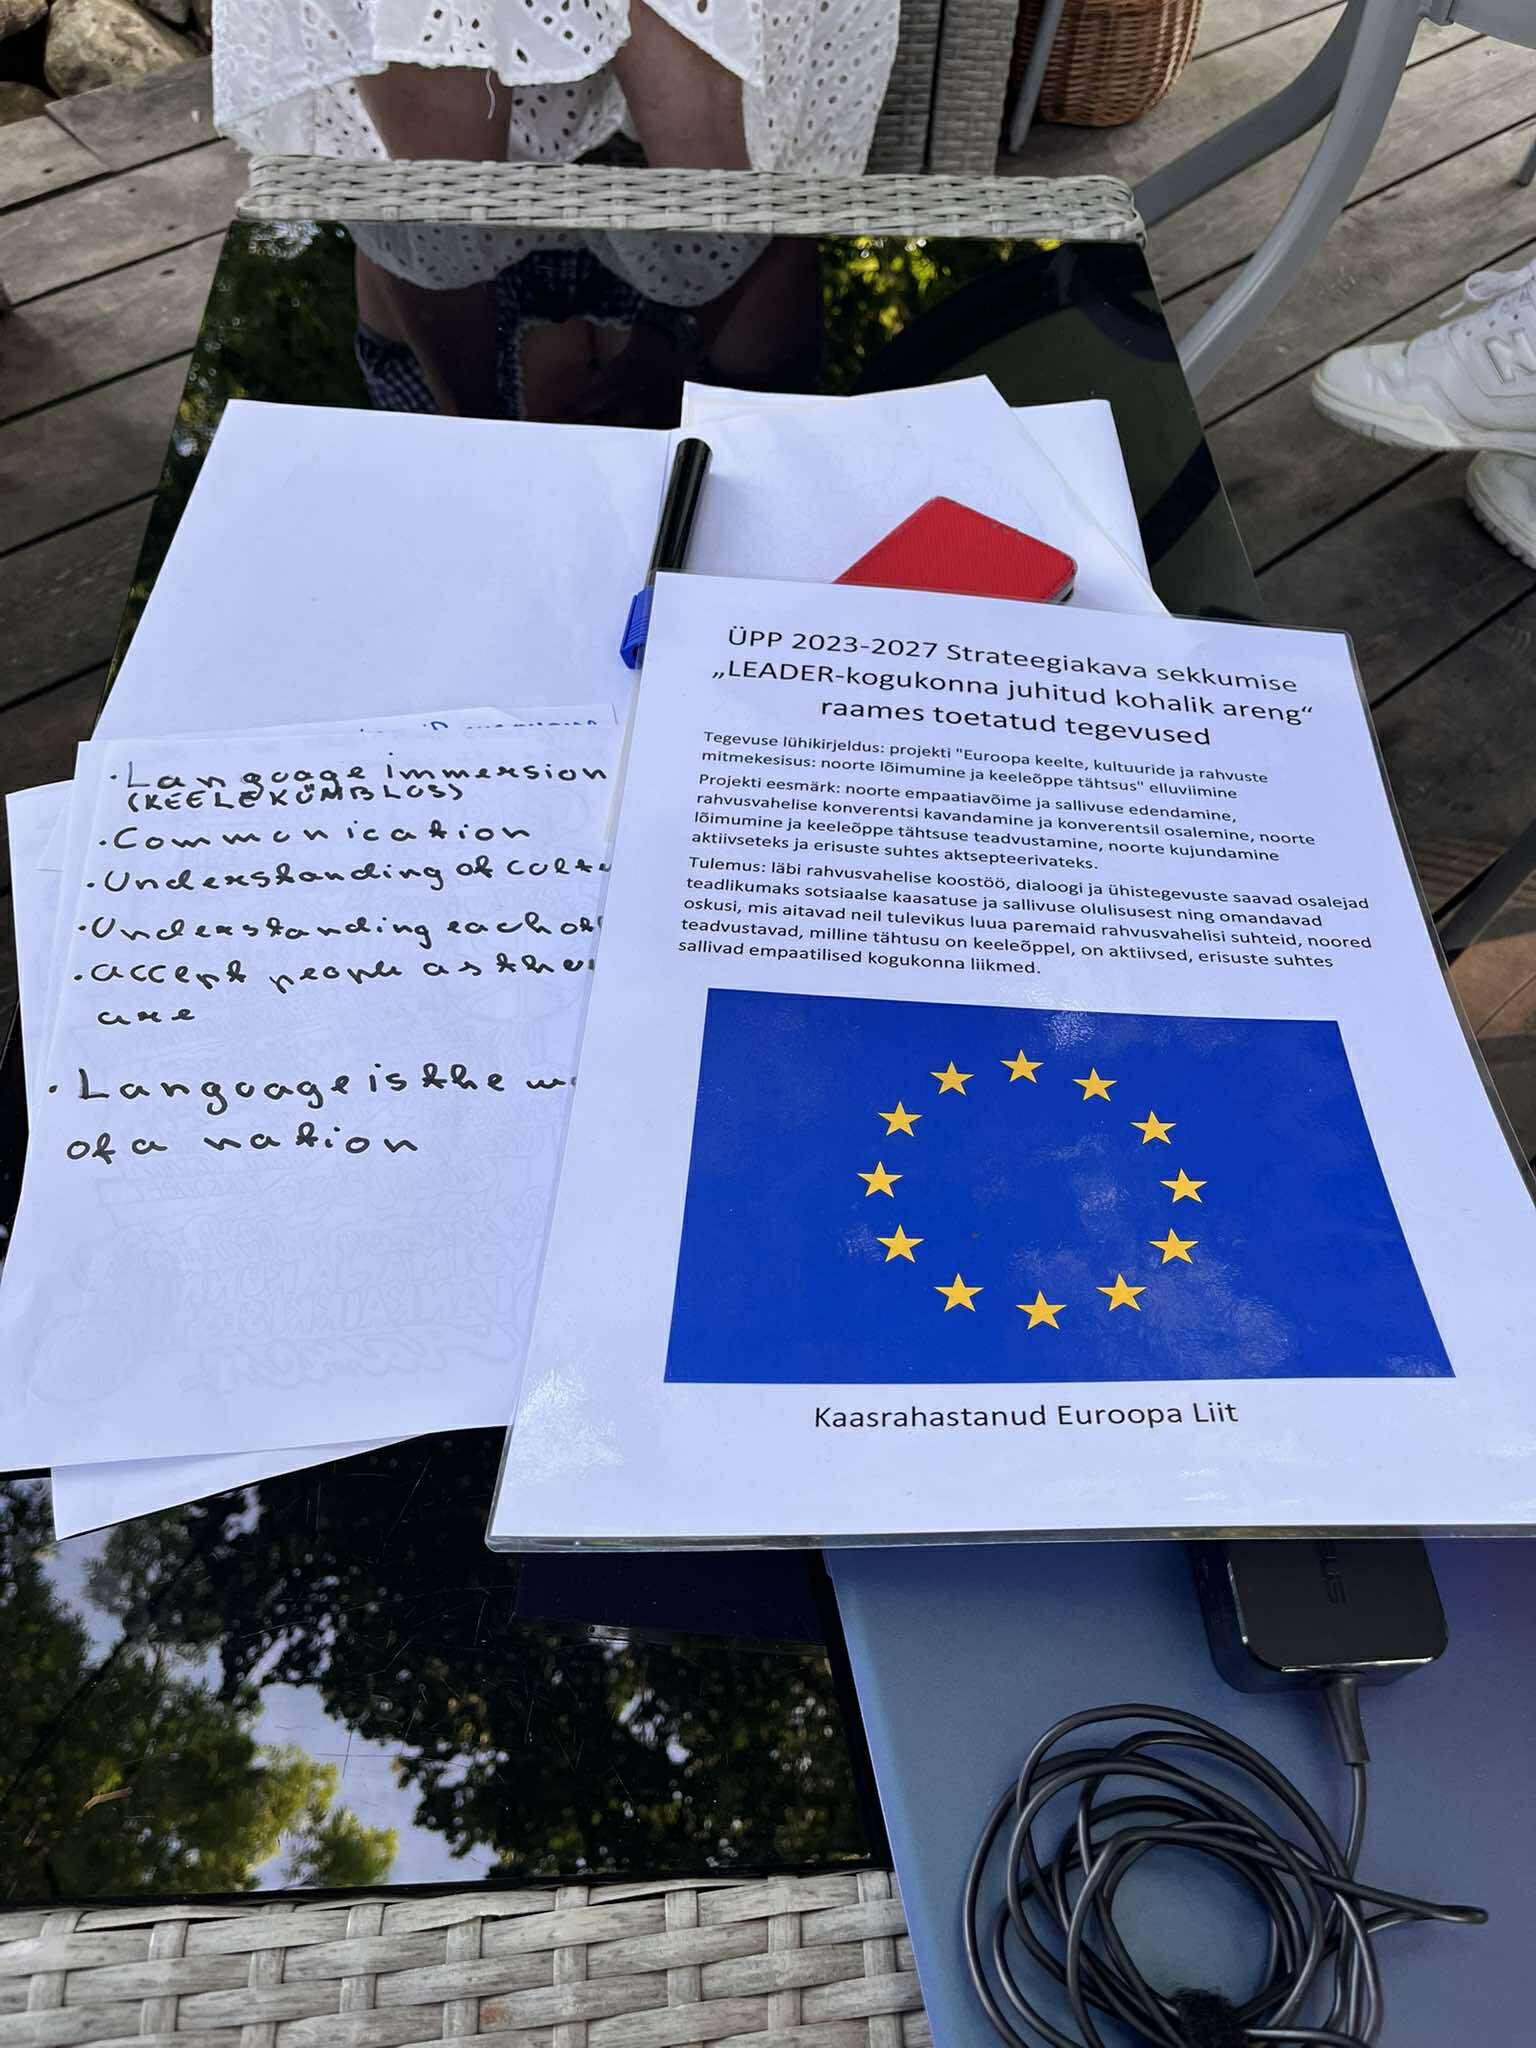 · Language immersion
(KEELEKÜMBLUS)
· Communication
· Understanding of
· Understanding each
· accept people as
are
· Language is the
of a nation
ÜPP 2023-2027 Strateegiakava sekkumise
„LEADER-kogukonna juhitud kohalik areng“
raames toetatud tegevused
Tegevuse lühikirjeldus: projekti "Euroopa keelte, kultuuride ja rahvuste
mitmekesisus: noorte lõimumine ja keeleõppe tähtsus" elluviimine
Projekti eesmärk: noorte empaatiavõime ja sallivuse edendamine,
rahvusvahelise konverentsi kavandamine ja konverentsil osalemine, noorte
lõimumine ja keeleõppe tähtsuse teadvustamine, noorte kujundamine
aktiivseteks ja erisuste suhtes aktsepteerivateks.
Tulemus: läbi rahvusvahelise koostöö, dialoogi ja ühistegevuste saavad osalejad
teadlikumaks sotsiaalse kaasatuse ja sallivuse olulisusest ning omandavad
oskusi, mis aitavad neil tulevikus luua paremaid rahvusvahelisi suhteid, noored
teadvustavad, milline tähtusu on keeleõppel, on aktiivsed, erisuste suhtes
sallivad empaatilised kogukonna liikmed.
Kaasrahastanud Euroopa Liit
N